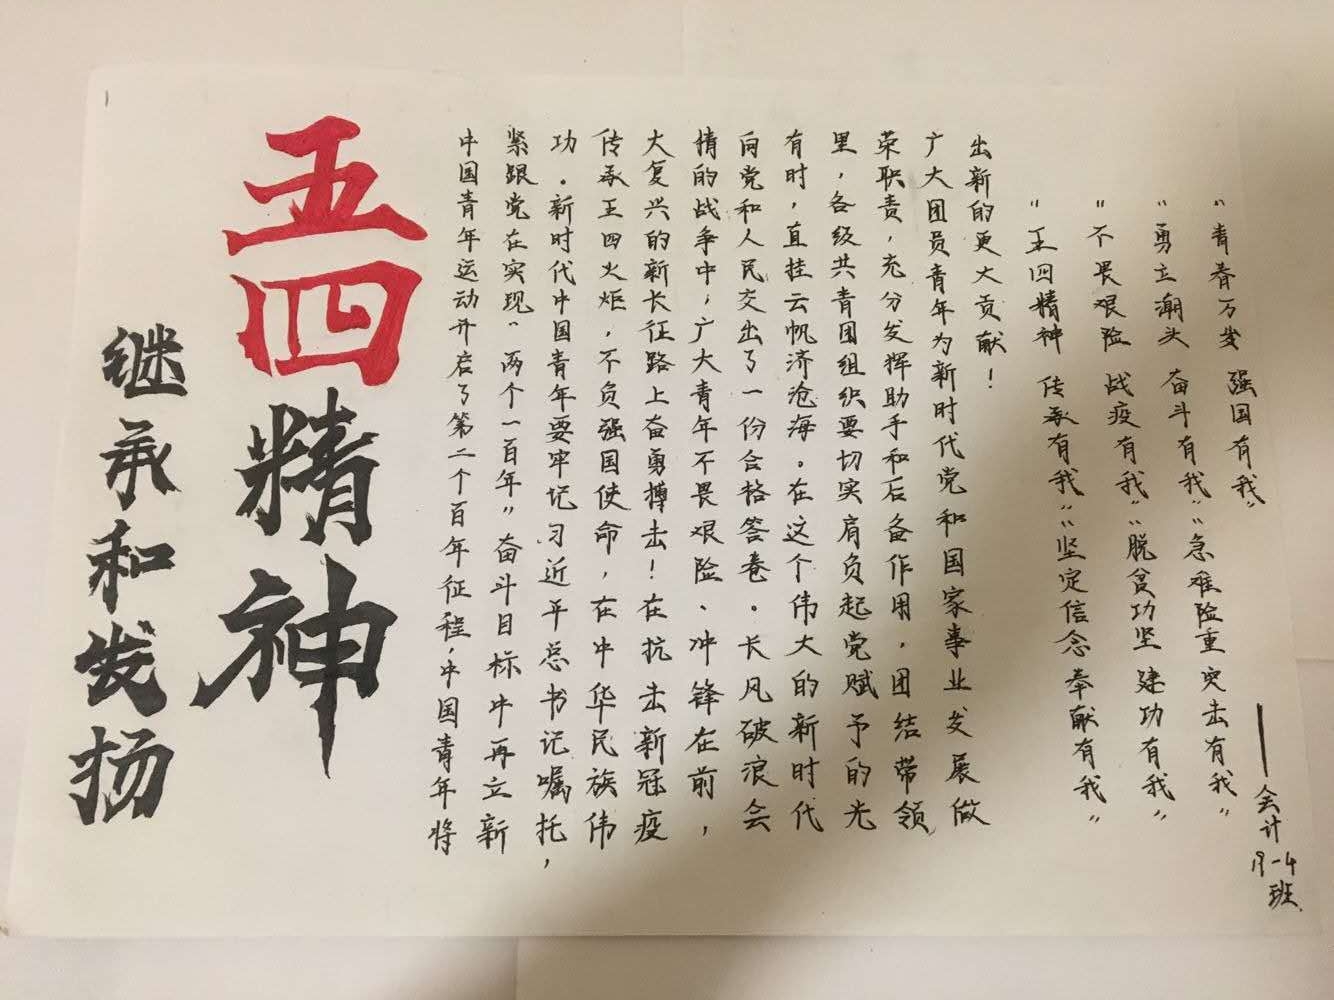 继承和发扬
五四精神
中国青年运动开启了第二个百年征程，中国青年将
紧跟党在实现“两个一百年”奋斗目标中再立新
功。新时代中国青年要牢记习近平总书记嘱托，
传承五四火炬，不负强国使命，在中华民族伟
大复兴的新长征路上奋勇搏击！在抗击新冠疫
情的战争中，广大青年不畏艰险、冲锋在前，
向党和人民交出了一份合格答卷。长风破浪会
有时，直挂云帆济沧海。在这个伟大的新时代
里，各级共青团组织要切实肩负起党赋予的光
荣职责，充分发挥助手和后备作用，团结带领
广大团员青年为新时代党和国家事业发展做
出新的更大贡献！
“五四精神 传承有我”“坚定信念 奉献有我”
“不畏艰险 战疫有我”“脱贫功坚 建功有我”
“勇立潮头 奋斗有我”“急难险重 突击有我”
“青春万岁 强国有我”
——会计19-4班